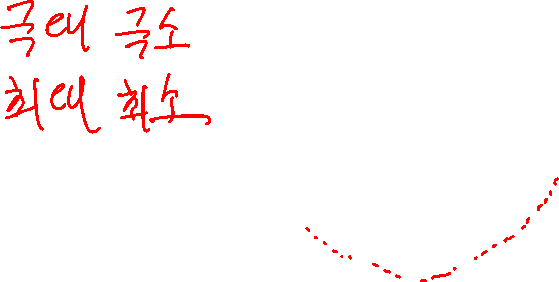 극대 극소
최대 최소